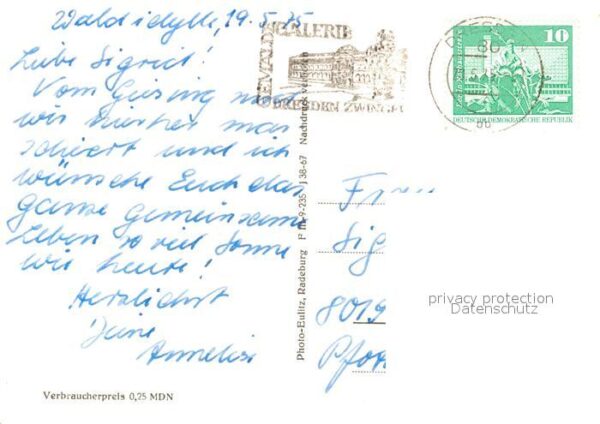 Waldidylle, 19.5.75
Liebe Sigrid!
Vom Geising
wir hierher mar
schiert und ich
wünsche Euch das
ganze gemeinsame
Leben so viel Sonne
wie heute!
Herzlichst
Deine
Annelise
GEMÄLDEGALERIE
DRESDEN ZWINGER
DRESDEN
80
10
DEUTSCHE DEMOKRATISCHE REPUBLIK
Photo-Eulitz, Radeburg J 38-67 Nachdruck verboten
Frau
Sig
8019
privacy protection
Datenschutz
Verbraucherpreis 0,25 MDN